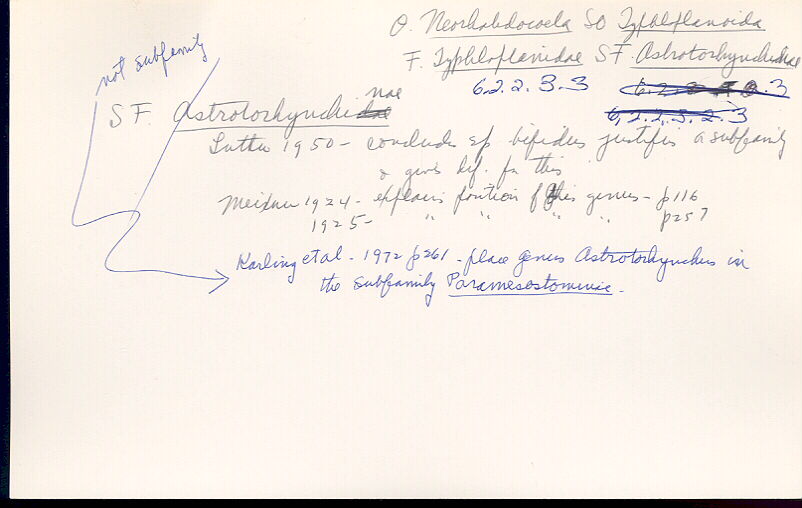 O. Neorhabdocoela SO Typhloplanoida
F. Typhloplanidae SF. Astrotorhynchidae
6.2.2.3.3
6.2.2.3.2.3
not subfamily
nae
SF. Astrotorhynchidae
Luther 1950 - concludes sp bifidus justifies a subfamily
& gives dif. for this
Meixner 1924 - explains position of this genus - p116
1925 - " " " " p257
Karling et al - 1972 p261 - place genus Astrotorhynchus in
the subfamily Paramesostominae.